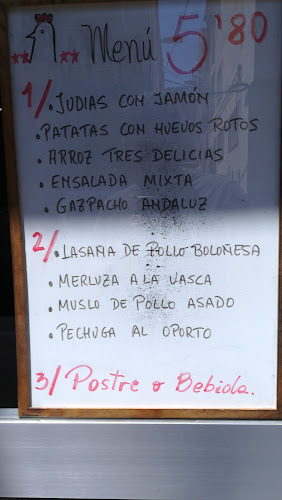 Menú 5'80
1/. JUDIAS CON JAMÓN
. PATATAS CON HUEVOS ROTOS
. ARROZ TRES DELICIAS
. ENSALADA MIXTA
. GAZPACHO ANDALUZ
2/. LASAÑA DE POLLO BOLOÑESA
. MERLUZA A LA VASCA
. MUSLO DE POLLO ASADO
. PECHUGA AL OPORTO
3/ Postre o Bebida.